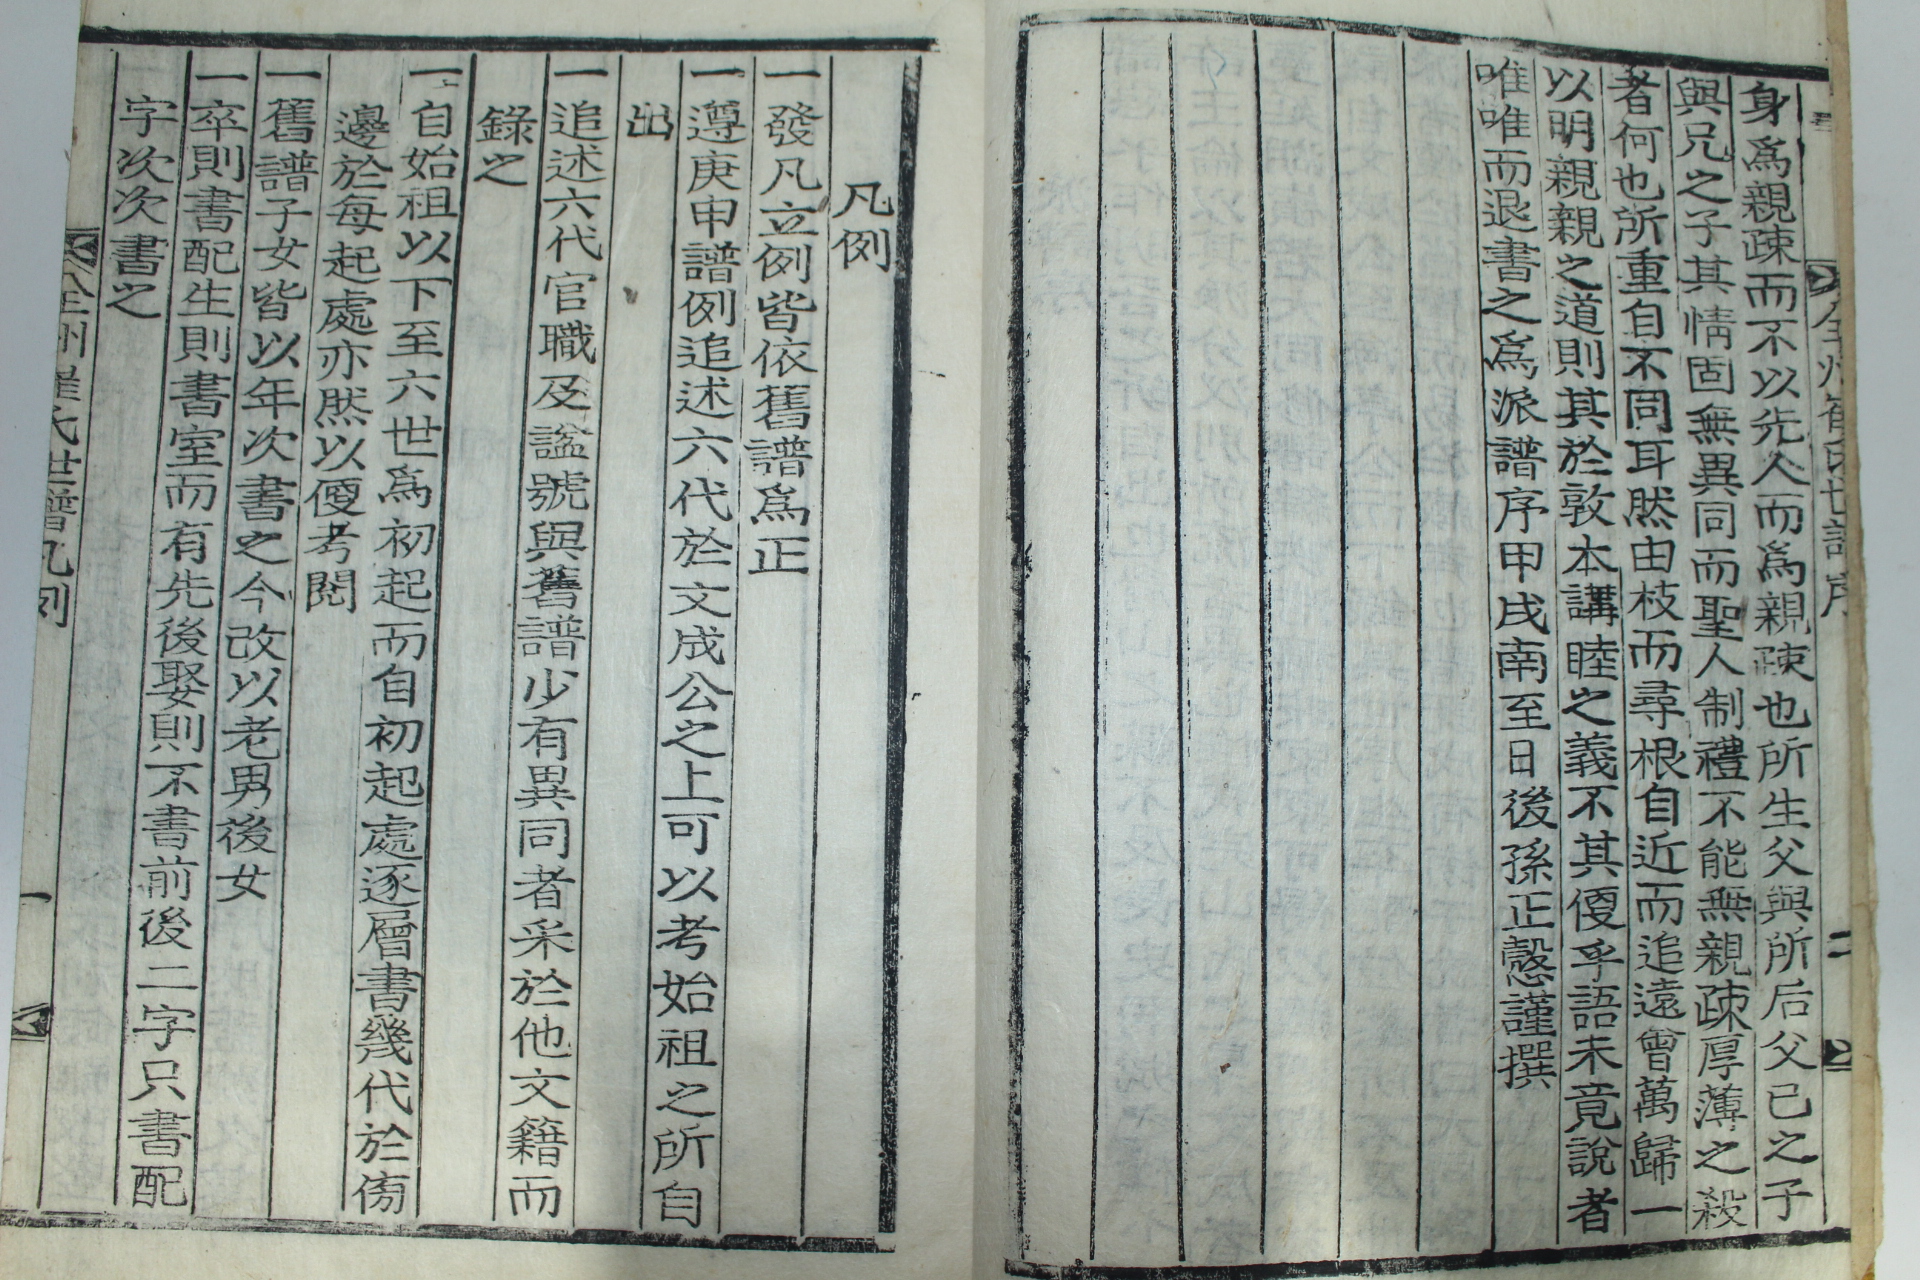 身爲親疎而不以先人而爲親疎也所生父與所后父已之子
與兄之子其情固無異同而聖人制禮不能無親疎厚薄之殺
者何也所重自不同耳然由枝而尋根自近而追遠會萬歸一
以明親親之道則其於敦本講睦之義不其優乎語未竟說者
唯唯而退書之爲派譜序甲戌南至日後孫正慤謹撰
凡例
一發凡立例皆依舊譜爲正
一遵庚申譜例追述六代於文成公之上可以考始祖之所自
出
一追述六代官職及諡號與舊譜少有異同者采於他文籍而
錄之
一自始祖以下至六世爲初起而自初起處逐層書幾代於傍
邊於每起處亦然以便考閱
一舊譜子女皆以年次書之今改以先男後女
一卒則書配生則書室而有先後娶則不書前後二字只書配
字次次書之
全州崔氏世譜凡例
一